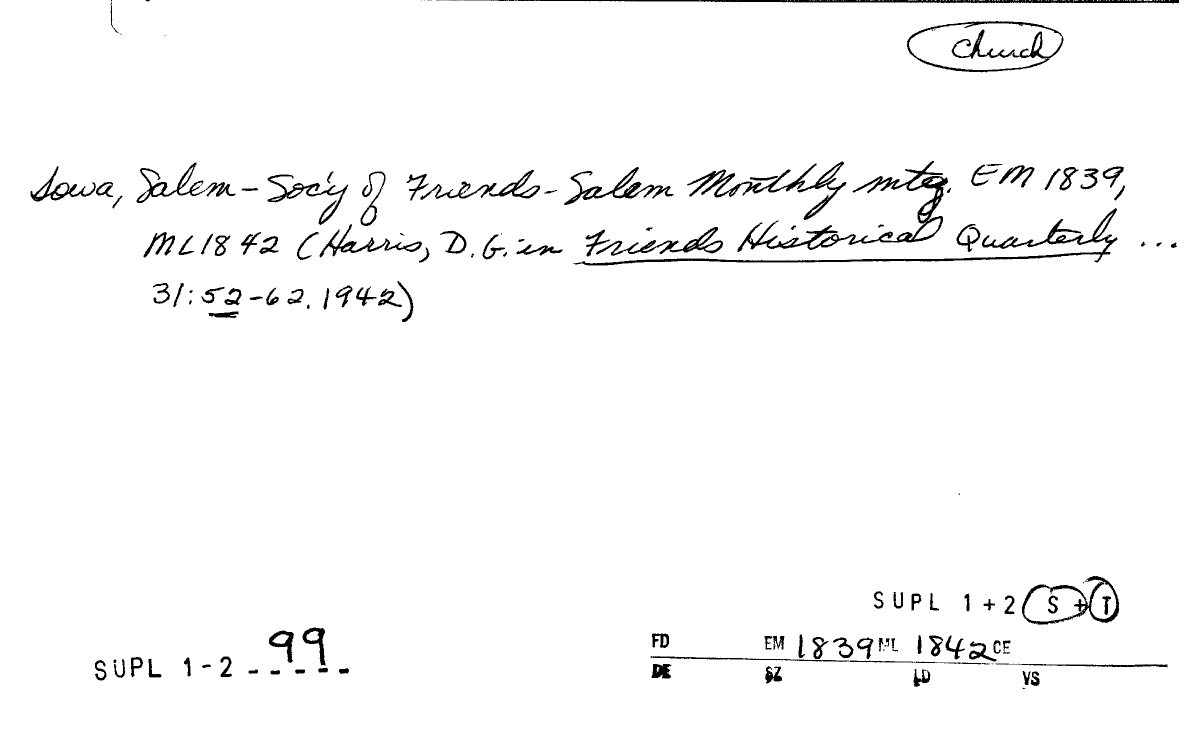 Church
Iowa, Salem - Soc'y of Friends - Salem Monthly mtg. EM 1839,
ML 1842 (Harris, D.G. in Friends Historical Quarterly ...
31:52-62. 1942)
SUPL 1+2 S+T
SUPL 1-2 99
FD EM 1839 ML 1842 CE
DE SZ LD VS